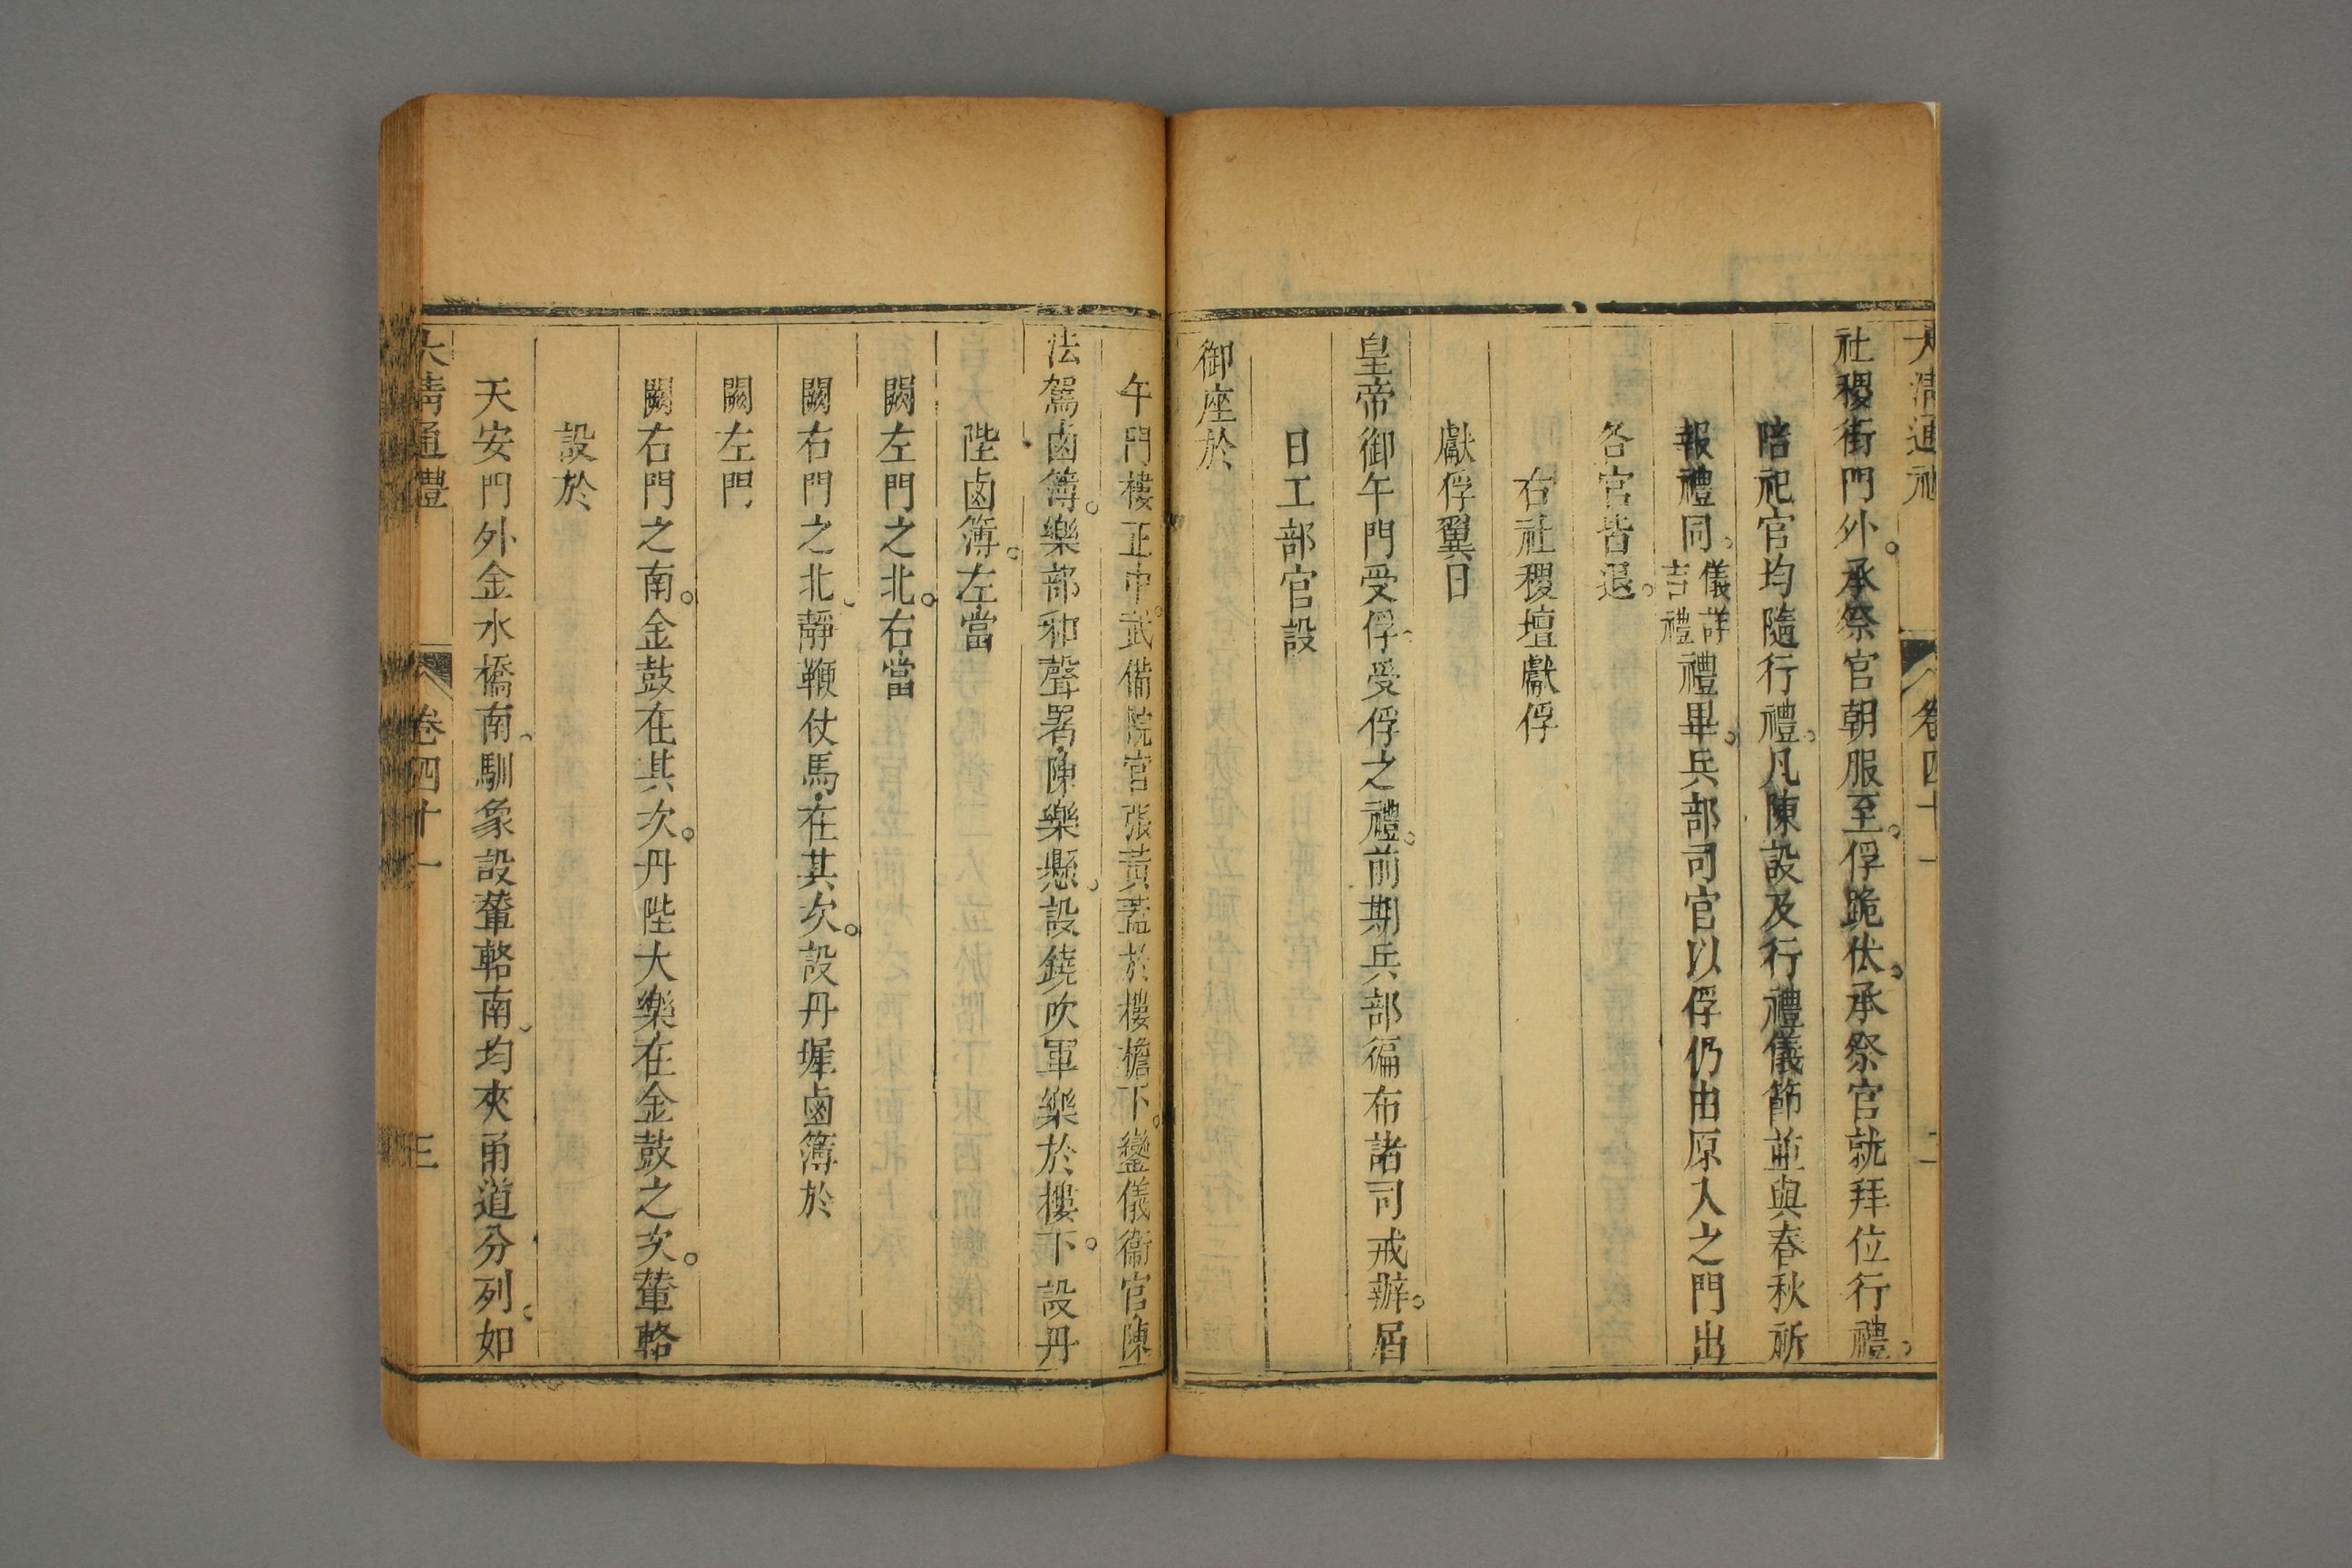 大清通禮 卷四十一 二
社稷街門外。承祭官朝服至。俘跪伏。承祭官就拜位行禮。
陪祀官均隨行禮。凡陳設及行禮儀節並與春秋祈
報禮同。儀詳吉禮禮畢。兵部司官以俘仍由原入之門出
各官皆退。
右社稷壇獻俘
獻俘翼日
皇帝御午門受俘。受俘之禮。前期兵部徧布諸司戒辦。屆
日工部官設
御座於
午門樓正中。武備院官張黃蓋於樓檐下。鑾儀衞官陳
法駕鹵簿。樂部和聲署陳樂懸。設鐃吹軍樂於樓下。設丹
陛鹵簿。左當
闕左門之北。右當
闕右門之北。靜鞭仗馬在其次。設丹墀鹵簿於
闕左門
闕右門之南。金鼓在其次。丹陛大樂在金鼓之次。輦輅
設於
天安門外金水橋南。馴象設輦輅南。均夾甬道分列。如
大清通禮 卷四十一 三